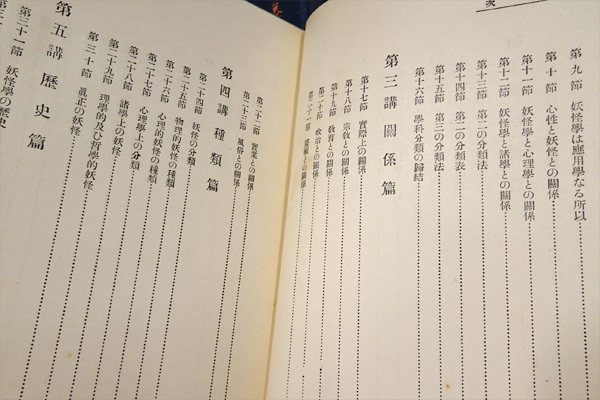 次
第九節 妖怪學は應用學なる所以
第十節 心性と妖怪との關係
第十一節 妖怪學と心理學との關係
第十二節 妖怪學と諸學との關係
第十三節 第一の分類法
第十四節 第二の分類表
第十五節 第三の分類法
第十六節 學科分類の歸結
第三講 關係篇
第十七節 實際上の關係
第十八節 宗敎との關係
第十九節 敎育との關係
第二十節 政治との關係
第二十一節
第二十二節 實業との關係
第二十三節 風俗との關係
第四講 種類篇
第二十四節 妖怪の分類
第二十五節 物理的妖怪の種類
第二十六節 心理的妖怪の種類
第二十七節 心理學上の分類
第二十八節 諸學上の妖怪
第二十九節 理學的及び哲學的妖怪
第三十節 眞正の妖怪
第五講 歷史篇
第三十一節 妖怪學の歷史